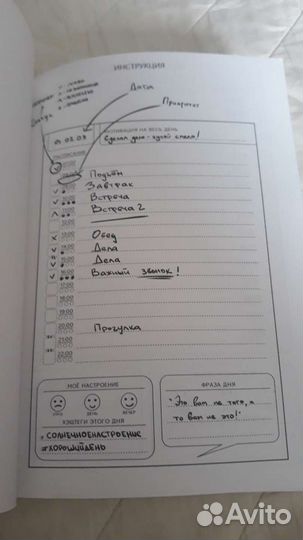 ИНСТРУКЦИЯ
Дата
Приоритет
Статус
МОТИВАЦИЯ НА ВЕСЬ ДЕНЬ
02.03
Сделал дело - гуляй смело!
РАСПИСАНИЕ
Подъём
Завтрак
Встреча
Встреча 2
Обед
Дела
Дела
16:00 Важный звонок!
17:00
18:00
19:00
20:00 Прогулка
21:00
22:00
МОЁ НАСТРОЕНИЕ
УТРО
ДЕНЬ
ВЕЧЕР
ХЭШТЕГИ ЭТОГО ДНЯ
#СОЛНЕЧНОЕНАСТРОЕНИЕ
#ХОРОШИЙДЕНЬ
ФРАЗА ДНЯ
"Это вам не
то вам не это!"
Avito